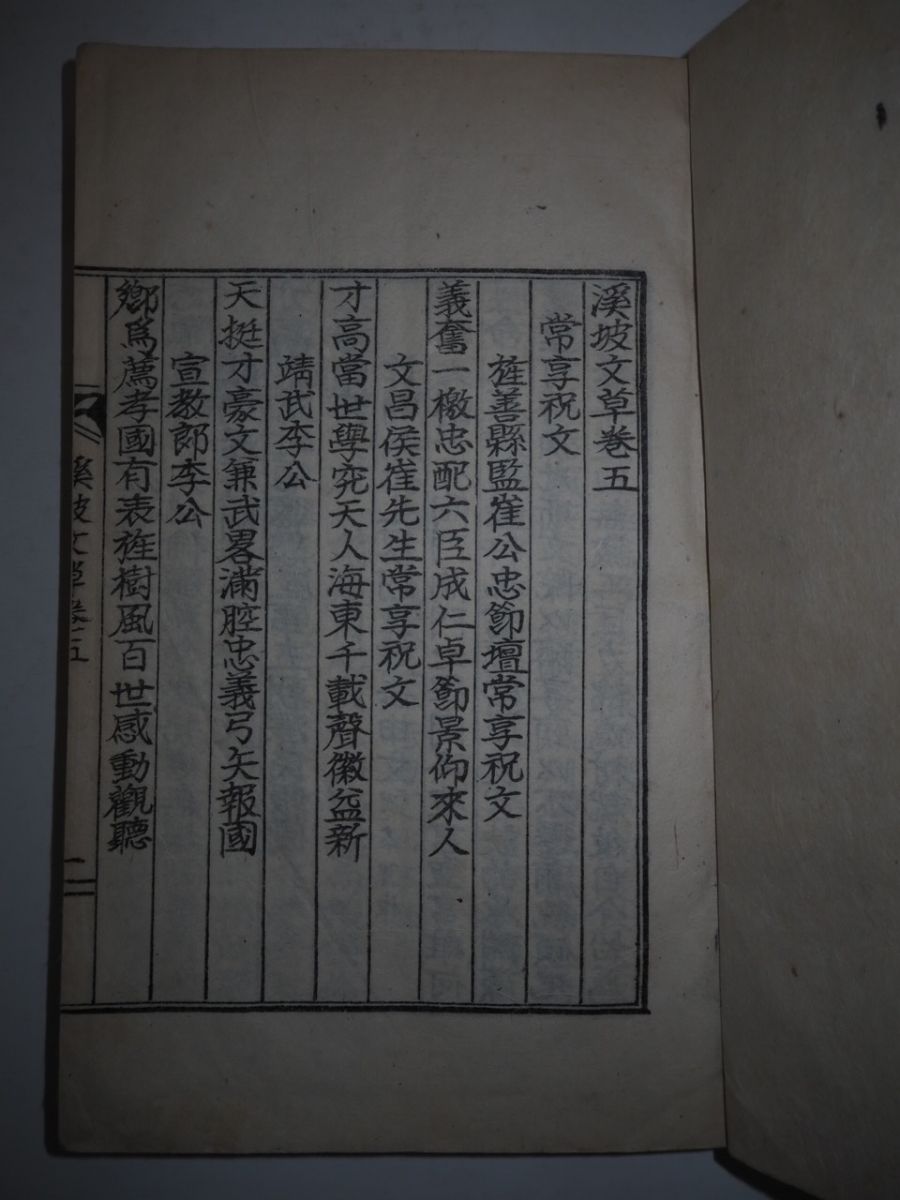 溪坡文草卷五
常享祝文
旌善縣監崔公忠節壇常享祝文
義奮一檄忠配六臣成仁卓節景仰來人
文昌侯崔先生常享祝文
才高當世學究天人海東千載聲徽益新
靖武李公
天挺才豪文兼武畧滿腔忠義弓矢報國
宣教郎李公
鄉爲薦孝國有表旌樹風百世感動觀聽
溪坡文草卷五
一